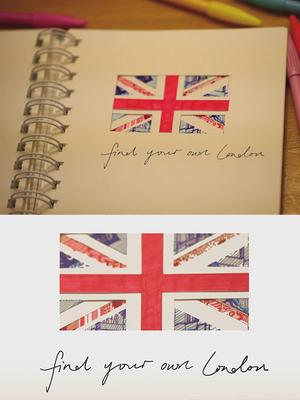 find your own London
find your own London